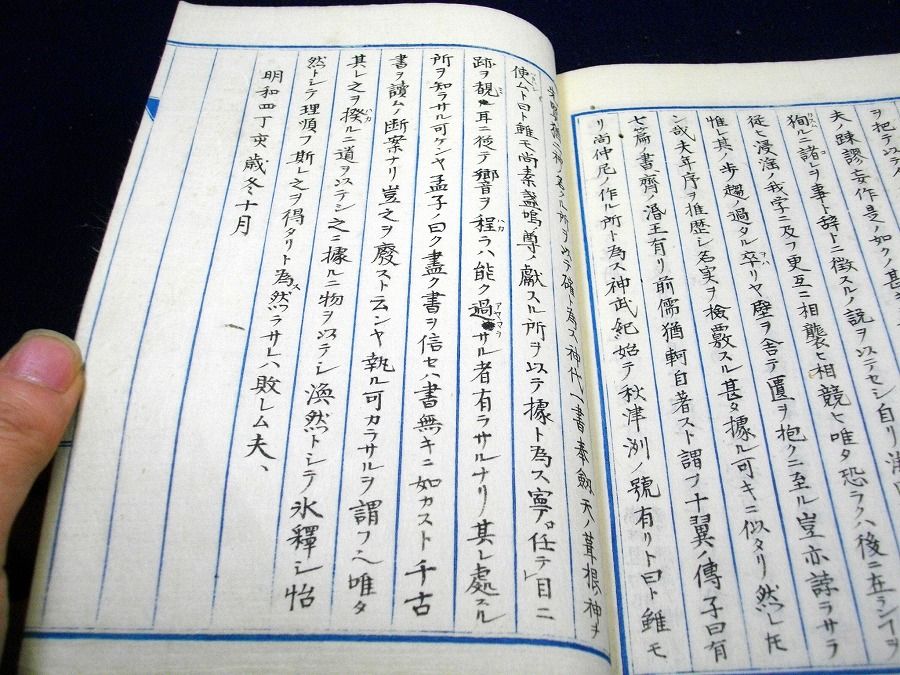 ヲ把テ以テ人
夫ノ踈謬妄作是ノ如クノ甚
狥ルニ諸ヲ事ト辞トニ徴スルノ説ヲ以テセシ自リ
従ヒ浸淫ノ我学ニ及フ更互ニ相襲ヒ相競ヒ唯タ恐ラクハ後ニ在ランコヲ
惟レ其ノ歩趨ノ過タル卒リヤ塵ヲ舎テ匱ヲ抱クニ至ル豈亦諄ラサラ
ン哉夫年序ヲ推歴シ名実ヲ検覈スル甚タ據ル可キニ似タリ然レ𪜈
七篇ノ書齊ノ湣王有リ前儒猶軻自著スト謂フ十翼ノ傳子曰有
リ尚仲尼ノ作ル所ト為ス神武紀始テ秋津洲ノ號有リト曰ト雖モ
神ノ名ル所ヲ以テ確ト為ス神代一書奉劔天ノ葺根ノ神ヲ
使ムト曰ト雖モ尚素盞嗚ノ尊ノ獻スル所ヲ以テ據ト為ス寧ロ任テ目ニ
跡ヲ覩ル耳ニ従テ響音ヲ程ラハ能ク過サル者有ラサルナリ其レ處スル
所ヲ知ラサル可ケンヤ孟子ノ曰ク盡ク書ヲ信セハ書無キニ如カスト千古
書ヲ讀ムノ断案ナリ豈之ヲ廢スト云ンヤ執ル可カラサルヲ謂フヘ唯タ
其レ之ヲ揆ルニ道ヲ以テシ之ニ據ルニ物ヲ以テシ渙然トシテ氷釋シ怡
然トシテ理順フ斯レ之ヲ得タリト為ス然ラサレハ敗レム夫、
明和四丁亥歳冬十月